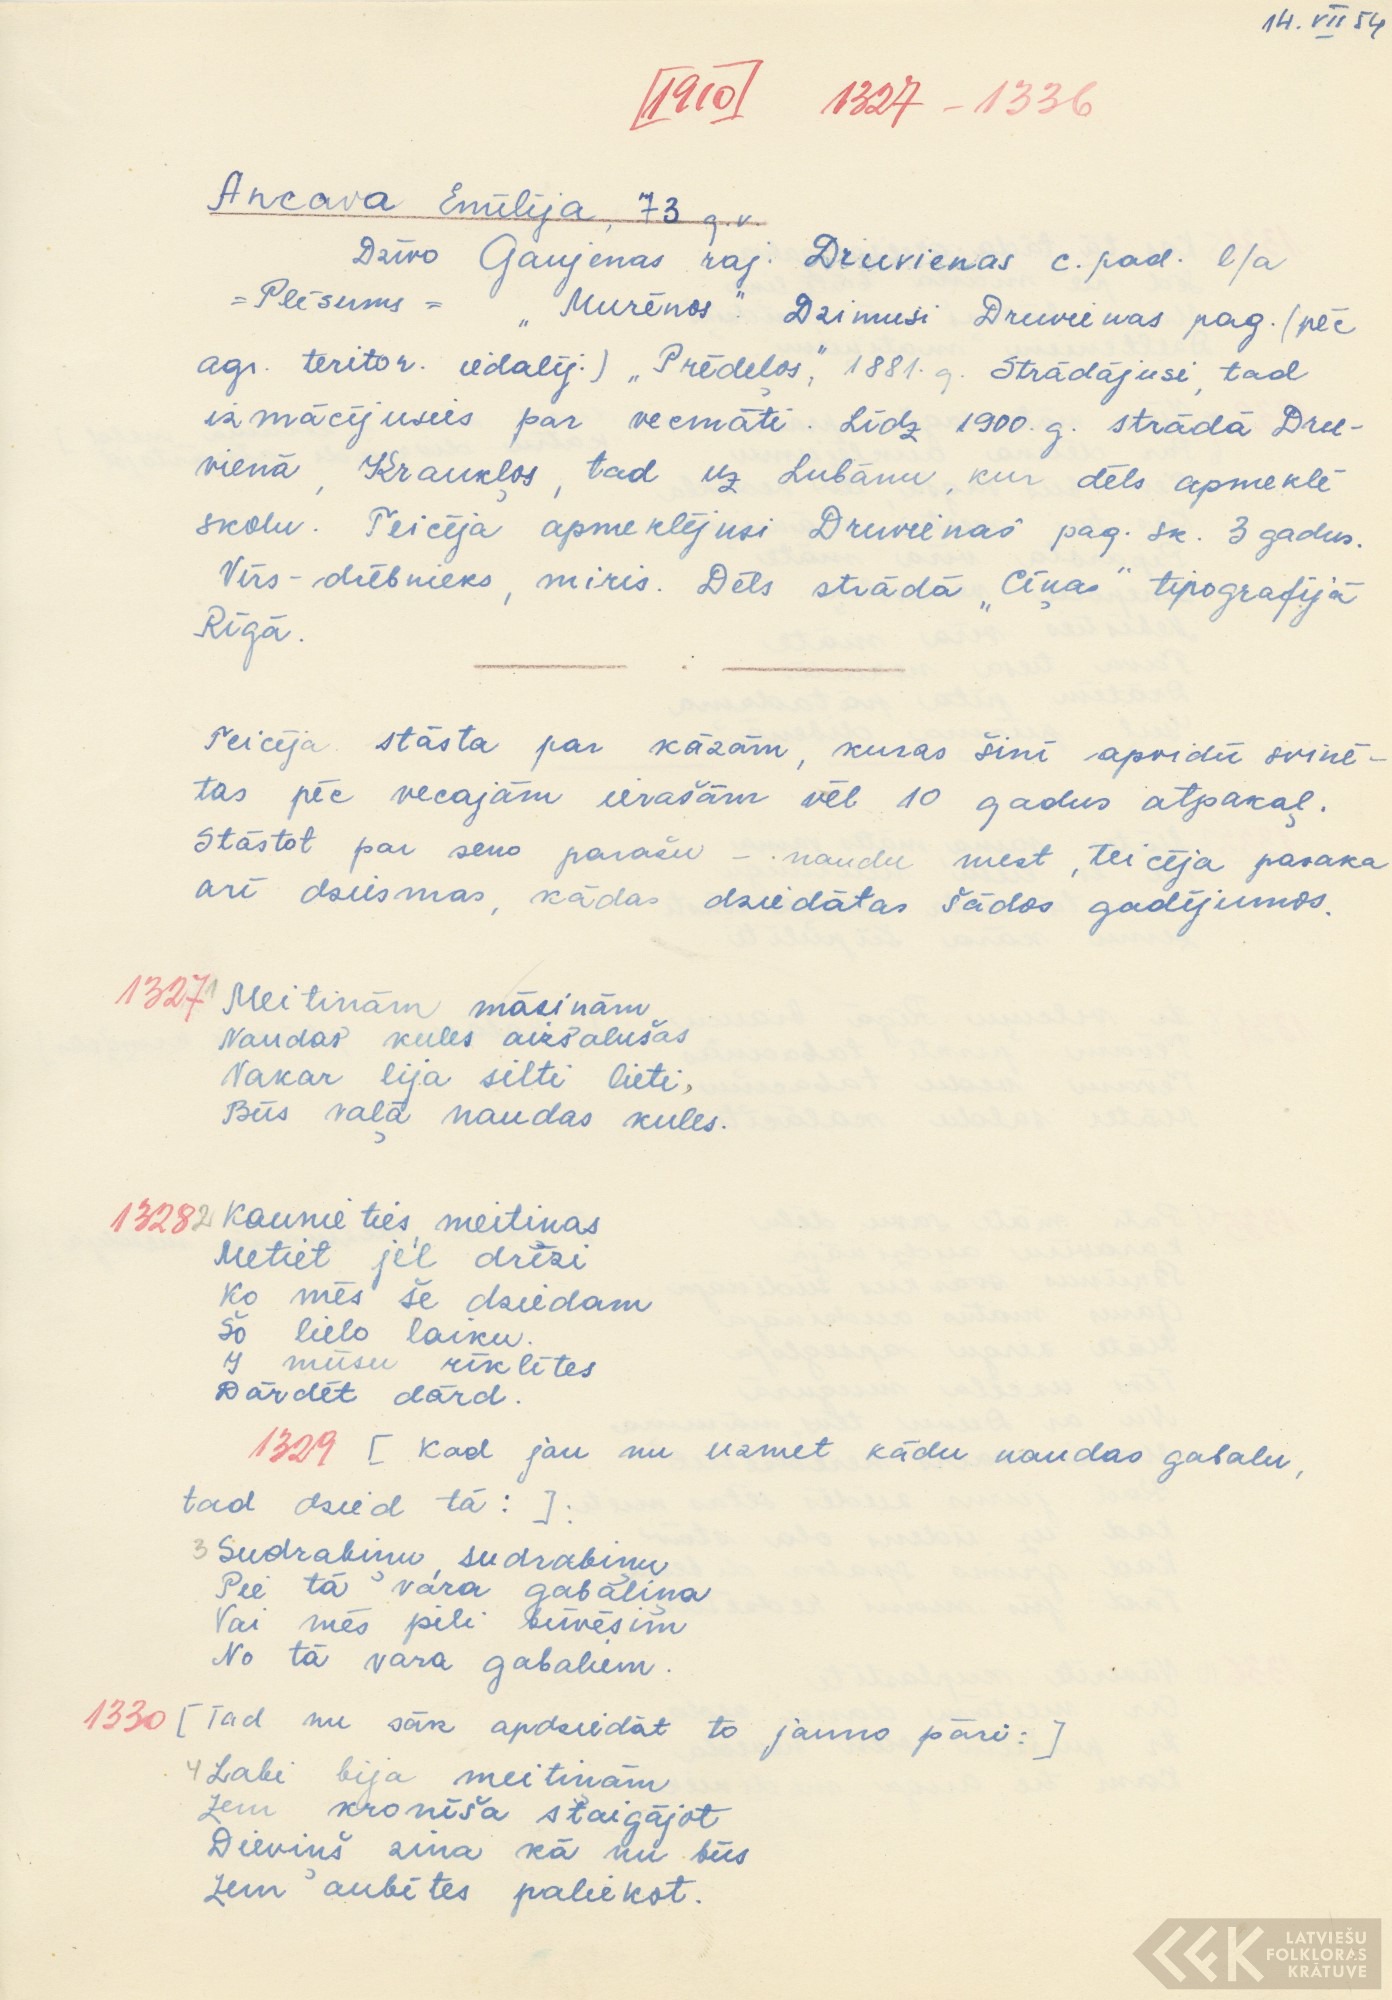 14. VII 54
[1910] 1327 - 1336
Ancava Emīlija, 73 g.v.
Dzīvo Gaujenas raj. Druvienas c. pad. l/a
= Plēsums = „Murēnos". Dzimusi Druvienas pag. (pēc
agr. teritor. iedalīj.) „Prēdeļos", 1881. g. Strādājusi, tad
izmācījusies par vecmāti. Līdz 1900. g. strādā Dru-
vienā, Kraukļos, tad uz Lubānu, kur dēls apmeklē
skolu. Teicēja apmeklējusi Druvienas pag. sk. 3 gadus.
Vīrs - drēbnieks, miris. Dēls strādā „Cīņas" tipografijā
Rīgā.
Teicēja stāsta par kāzām, kuras šinī apvidū svinē-
tas pēc vecajām ierašām vēl 10 gadus atpakaļ.
Stāstot par seno parašu - naudu mest, teicēja pasaka
arī dziesmas, kādas dziedātas šādos gadījumos.
1327 1 Meitiņām māsiņām
Naudas kules aizšalušas
Vakar lija silti lieti,
Būs vaļā naudas kules.
1328 2 Kaunieties, meitiņas
Metiet jel drīzi
Ko mēs še dziedam
Šo lielo laiku.
I mūsu rīklītes
Dārdēt dārd.
1329 [ Kad jau nu uzmet kādu naudas gabalu,
tad dzied tā: ]:
3 Sudrabiņu, sudrabiņu
Pie tā vara gabaliņa
Vai mēs pili būvēsim
No tā vara gabaliem.
1330 [Tad nu sāk apdziedāt to jauno pāri: ]
4 Labi bija meitiņām
Zem kronīša staigājot
Dieviņš zina kā nu būs
Zem aubītes paliekot.
LATVIEŠU
FOLKLORAS
KRĀTUVE